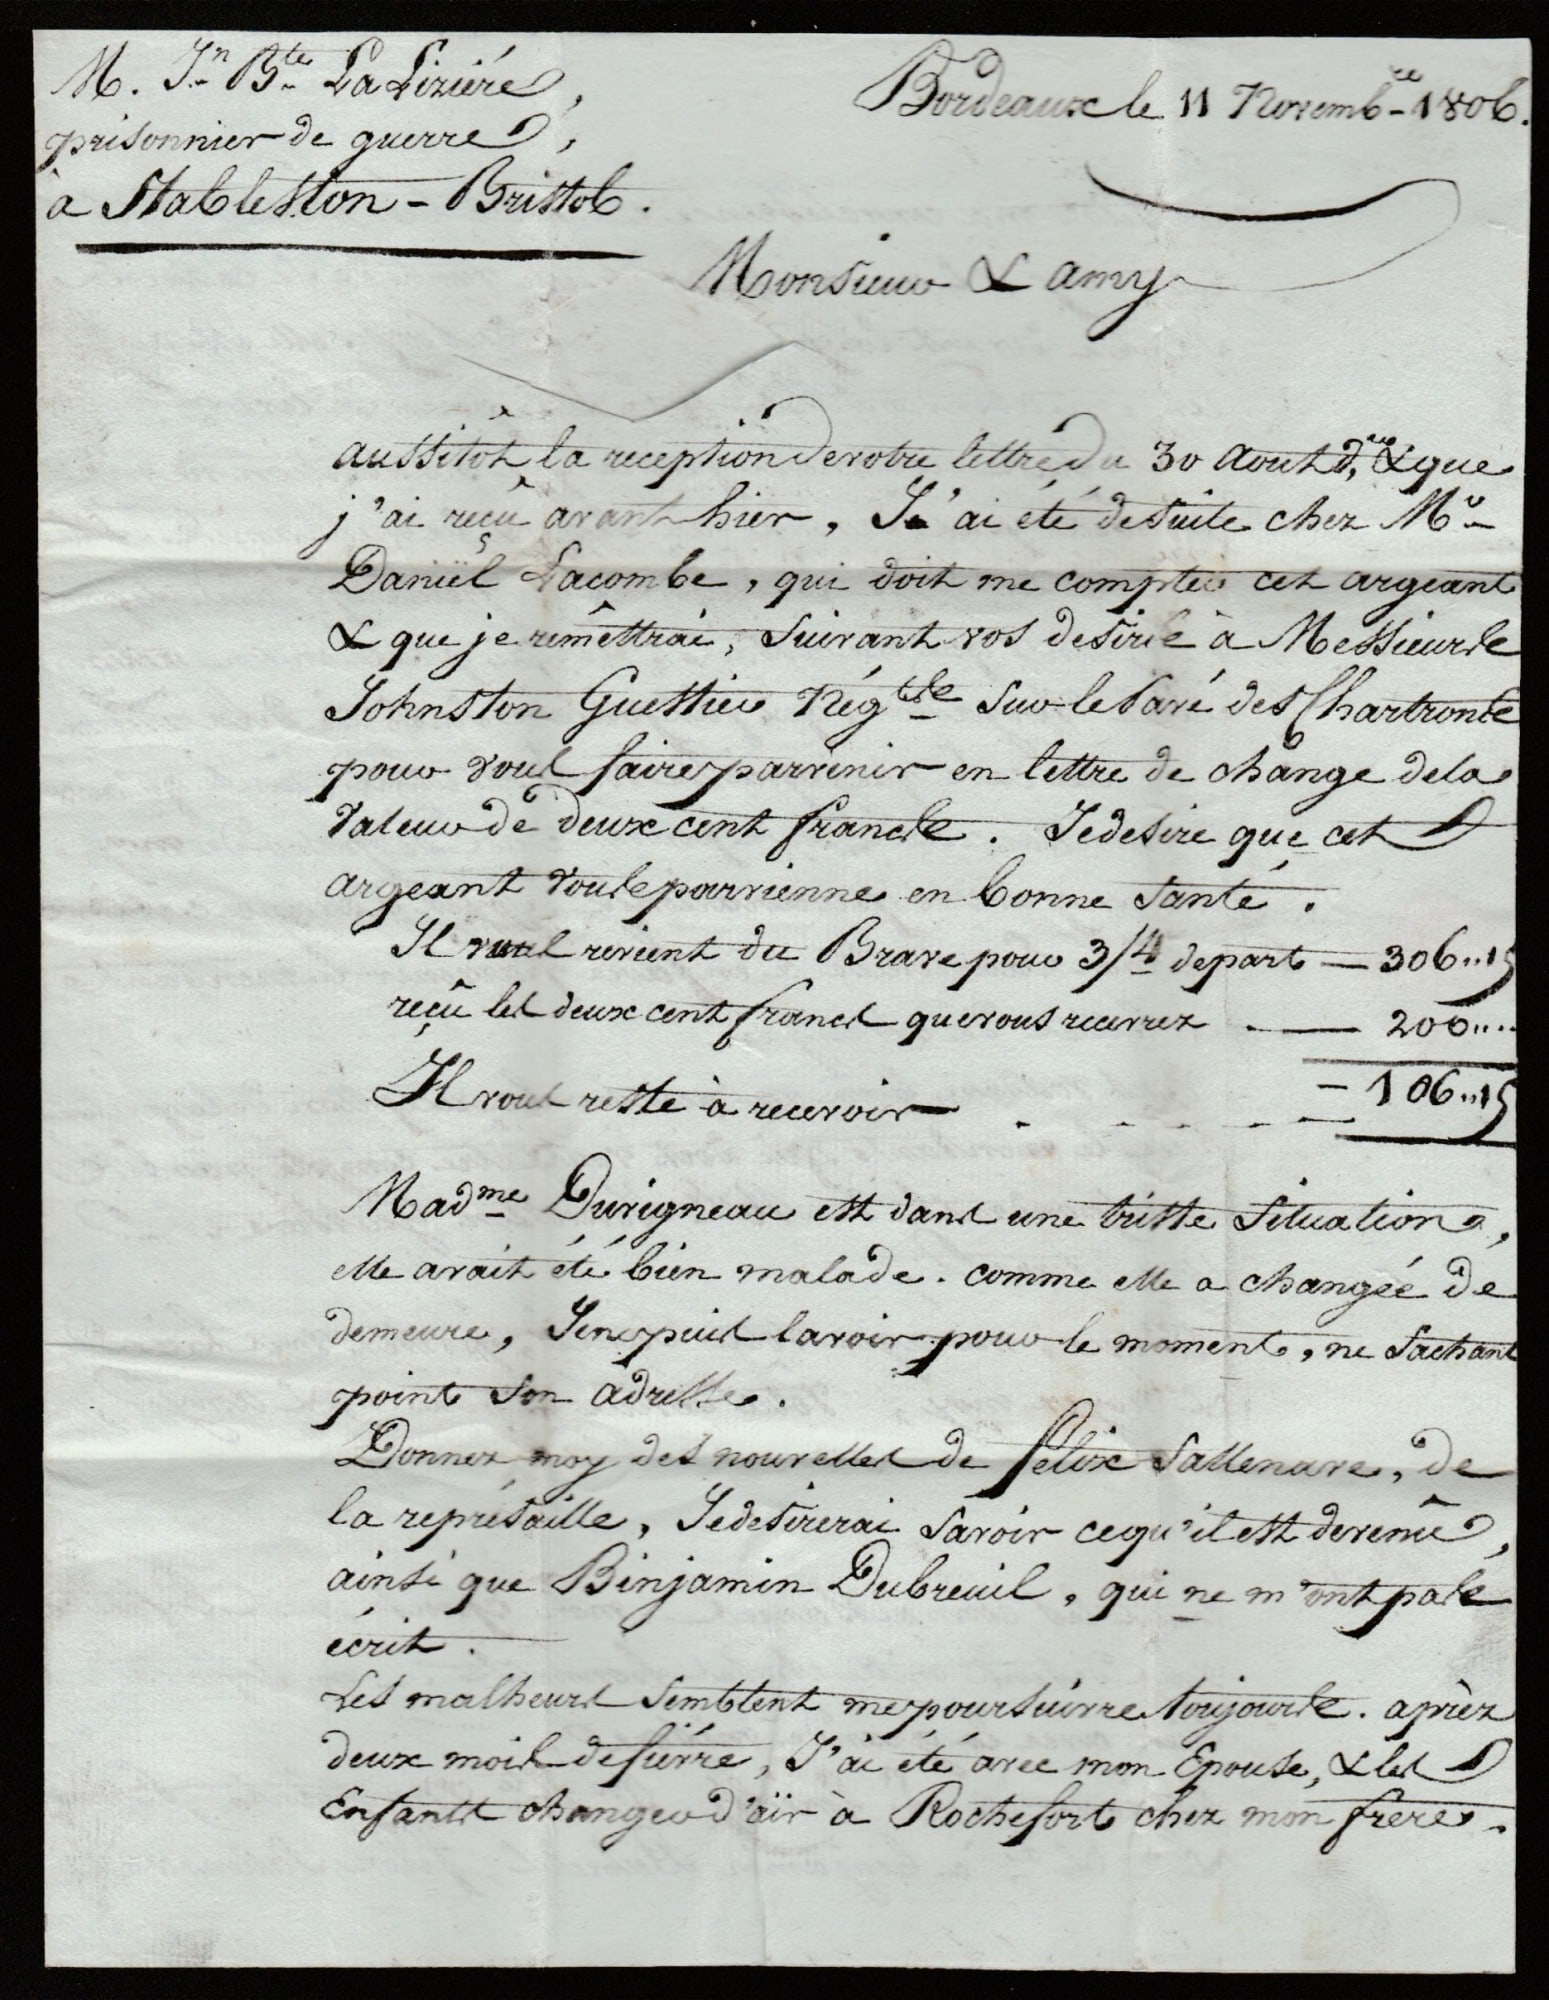 M. Jn Bte LaLiziére,
prisonnier de guerre,
à Stableston - Bristol.
Bordeaux le 11 Novembre 1806.
Monsieur & amy
aussitôt la reception de votre lettre du 30 Aout der & que
j'ai reçû avant hier, J'ai été de suite chez Mr
Daniël Lacombe, qui doit me compter cet argeant
& que je remêttrai, suivant vos desirs à Messieurs
Johnston Guestier Négts sur le Pavé des Chartrons
pour vous faire parvenir en lettre de change de la
valeur de deux cent francs. Je desire que cet
argeant vous parvienne en bonne santé.
Il vous revient du Brave pour 3/4 de part — 306..15
reçû les deux cent francs que vous recevrez . — 200....
Il vous reste à recevoir . . . . — 106..15
Madme Duvigneau est dans une triste situation,
elle avait été bien malade. comme elle a changée de
demeure, Je ne puis la voir pour le moment, ne sachant
point son adresse.
Donnez moy des nouvelles de felix Sallenave, de
la représaille, Je desirerai savoir ce qu'il est devenû,
ainsi que Binjamin Dubreuil, qui ne m'ont pas
écrit.
Les malheurs semblent me poursuivre toujours. aprèz
deux mois de fièvre, J'ai été avec mon Epouse, & les
Enfants changer d'aïr à Rochefort chez mon frere.